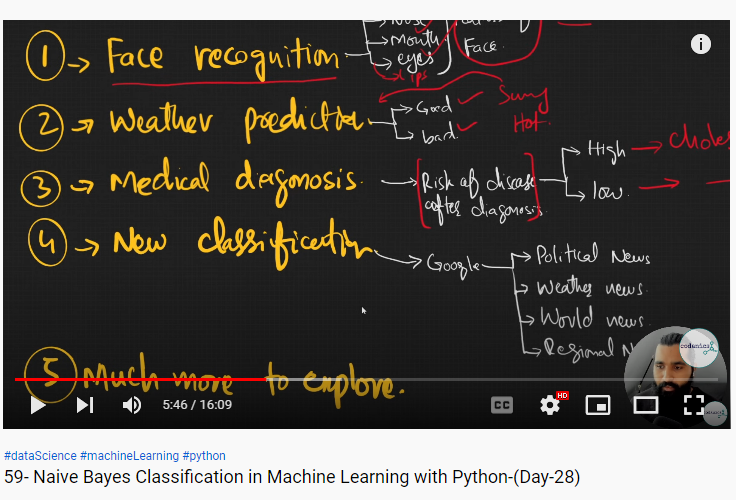 → Nose
① → Face recognition → mouth Face.
→ eyes
→ Lips
② → Weather prediction → Good Sunny
→ bad. Hot.
③ → Medical diagnosis. → Risk of disease after diagnosis. → High →
→ low. →
④ → New classification → Google → Political News
→ Weather news.
→ World news.
→ Regional N
codanics
⑤ Much more to explore.
5:46 / 16:09
CC
HD
codanics
#dataScience #machineLearning #python
59- Naive Bayes Classification in Machine Learning with Python-(Day-28)